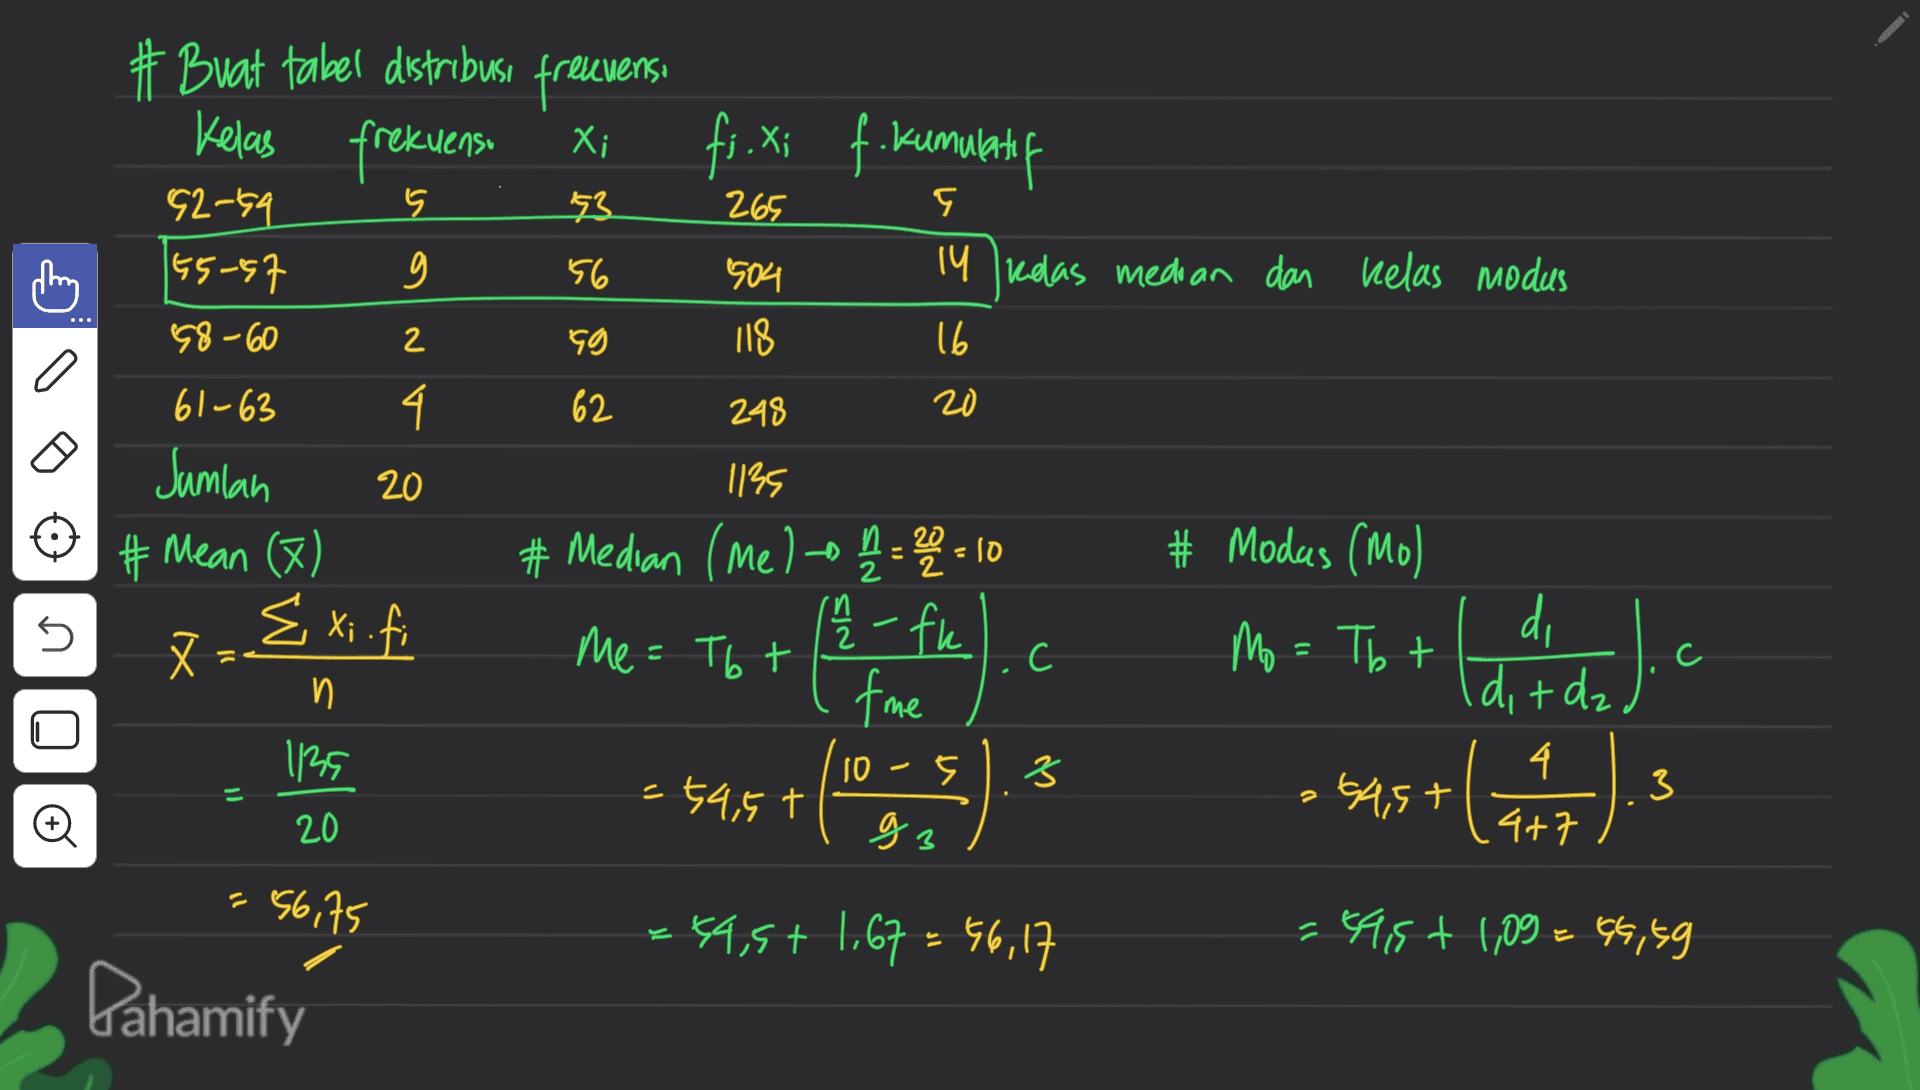 # Buat tabel distribusi frekuensi
Kelas frekuensi xi fi.xi f.kumulatif
52-54 5 53 265 5
55-57 9 56 504 14 kelas median dan kelas modus
58-60 2 59 118 16
61-63 4 62 248 20
Jumlah 20 1135
# Mean (x̄)
x̄ = Σ xi.fi / n
= 1135 / 20
= 56,75
# Median (Me) → n/2 = 20/2 = 10
Me = Tb + ((n/2 - fk) / fme) . c
= 54,5 + ((10 - 5) / 9 3) . 3
= 54,5 + 1,67 = 56,17
# Modus (Mo)
Mo = Tb + (d1 / (d1 + d2)) . c
= 54,5 + (4 / (4+7)) . 3
= 54,5 + 1,09 = 55,59
Pahamify